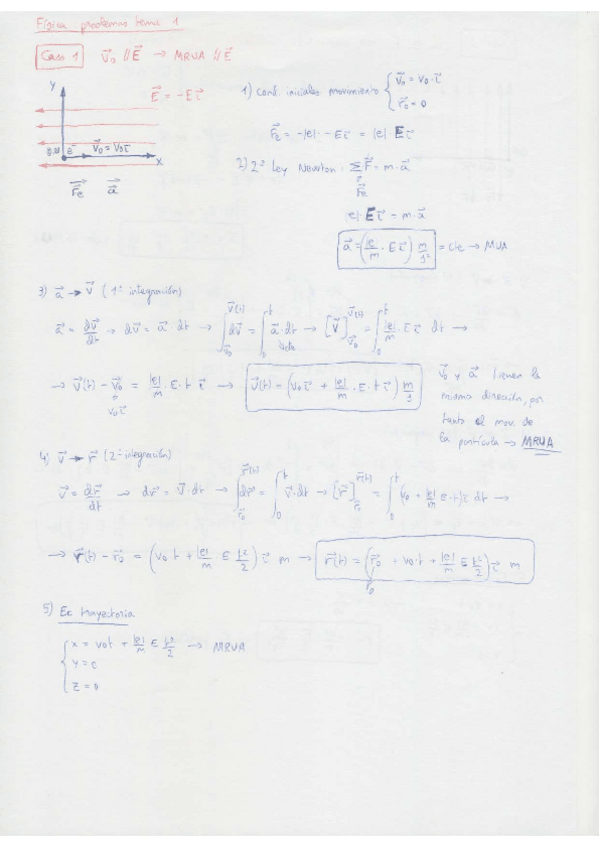 Física problemas tema 1
Caso 1 v⃗₀ // E⃗ → MRUA // E⃗
y
E⃗ = -E i⃗
e⁻ v⃗₀ = v₀ i⃗
x
F⃗e a⃗
1) Cond. iniciales movimiento { v⃗₀ = v₀ · i⃗
r⃗₀ = 0
F⃗e = -|e| · -E i⃗ = |e| E i⃗
2) 2ª Ley Newton: Σ F⃗ = m · a⃗
F⃗e
|e| · E i⃗ = m · a⃗
a⃗ = (|e|/m · E i⃗) m/s² = cte → MUA
3) a⃗ → v⃗ (1ª integración)
a⃗ = dv⃗/dt → dv⃗ = a⃗ · dt → ∫_{v⃗₀}^{v⃗(t)} dv⃗ = ∫_0^t a⃗ · dt → [v⃗]_{v⃗₀}^{v⃗(t)} = ∫_0^t |e|/m · E i⃗ dt →
→ v⃗(t) - v⃗₀ = |e|/m · E · t i⃗ → v⃗(t) = (v₀ i⃗ + |e|/m · E · t i⃗) m/s
v₀ i⃗
v⃗₀ y a⃗ tienen la
misma dirección, por
tanto el mov. de
la partícula → MRUA
4) v⃗ → r⃗ (2ª integración)
v⃗ = dr⃗/dt → dr⃗ = v⃗ · dt → ∫_{r⃗₀}^{r⃗(t)} dr⃗ = ∫_0^t v⃗ · dt → [r⃗]_{r⃗₀}^{r⃗(t)} = ∫_0^t (v₀ + |e|/m E · t) i⃗ dt →
→ r⃗(t) - r⃗₀ = (v₀ t + |e|/m E t²/2) i⃗ m → r⃗(t) = (r⃗₀ + v₀ · t + |e|/m E t²/2) i⃗ m
5) Ec trayectoria
{ x = v₀t + |e|/m E t²/2 → MRUA
y = 0
z = 0